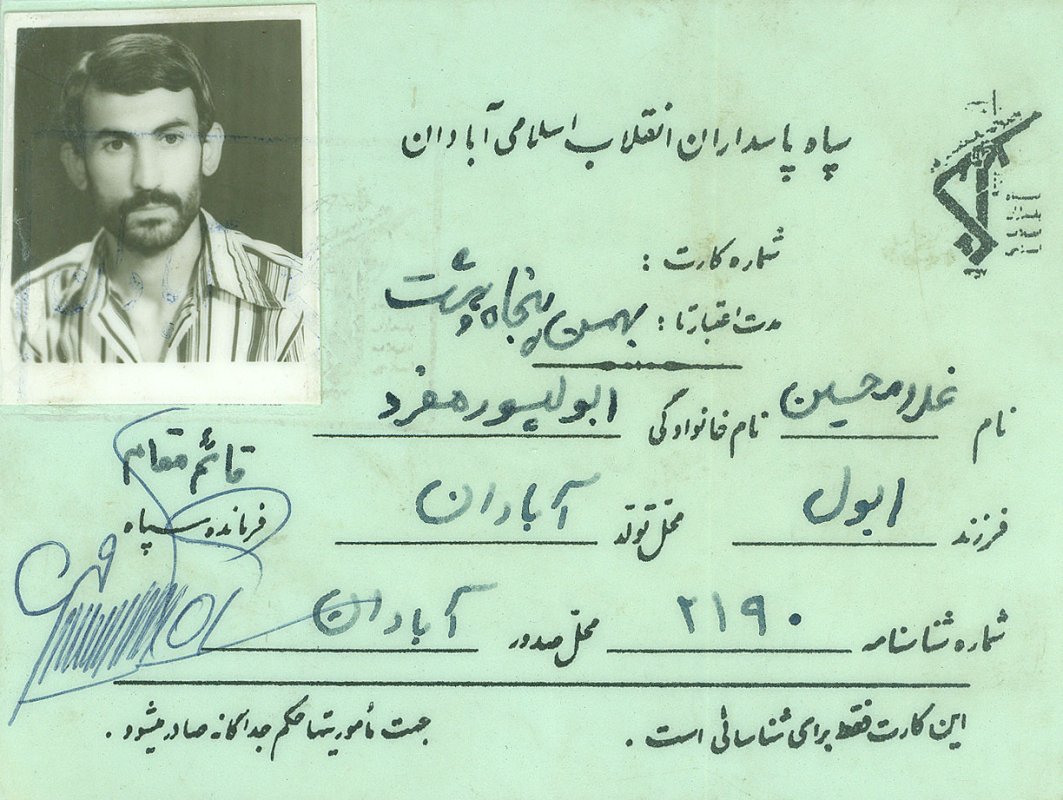 سپاه پاسداران انقلاب اسلامی آبادان
شماره کارت :
مدت اعتبار تا : بهمن پنجاه و هشت
نام غلامحسین نام خانوادگی ابولپور مفرد
فرزند ابول محل تولد آبادان
شماره شناسنامه ۲۱۹۰ محل صدور آبادان
قائم مقام
فرمانده سپاه
این کارت فقط برای شناسائی است .
جهت مأموریتها حکم جداگانه صادر میشود .